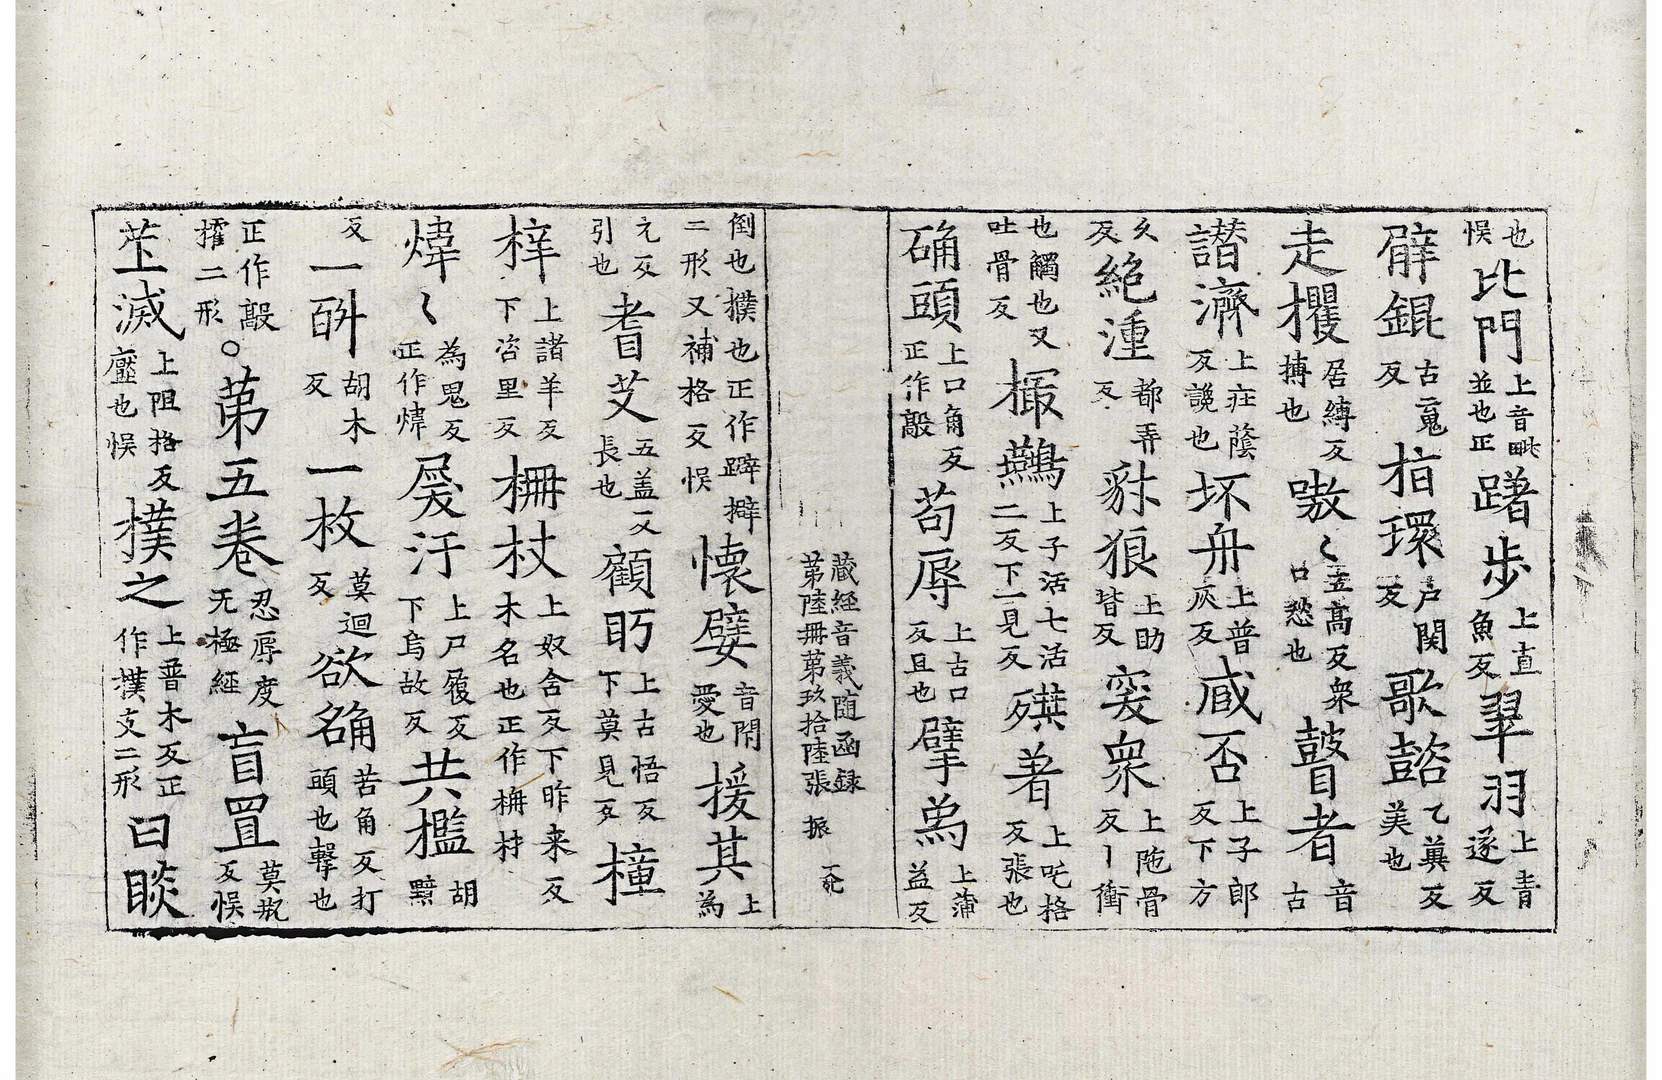 也悮比門上音毗並也正躇步上直魚反翠羽上青遂反
僻錕古䰟反栺環户関反歌䜭乙䔇反美也
走欔居縛反搏也嗷〱五髙反衆口愁也瞽者音古
譛濟上莊䕃反䜛也坏舟上普灰反咸否上子郎反下方
久反絶湩都弄反豺狼上助皆反突衆上陁骨反丨衝
也觸也又吐骨反撮鷰上子活七活二反下一見反㱵著上吒格反張也
确頭上口角反正作㱿苟辱上古口反且也擘為上蒲益反
倒也撲也正作躃擗二形又補格反悮懷嬖音閇愛也援其上為
元反引也耆艾五盖反長也顧眄上古悟反下莫見反橦
梓上諸羊反下咨里反柵杖上奴舍反下昨来反木名也正作柟材
煒〱為鬼反正作煒屐汙上尸履反下烏故反共檻胡黤
反一斛胡木反一枚莫迴反欲确苦角反打頭也擊也
正作㱿搉二形○苐五卷忍辱度无極經盲罝莫瓶反悮
苲滅上阻格反壓也悮樸之上普木反正作撲攴二形曰睒
藏経音義随函録
苐陸冊苐玖拾陸張 振